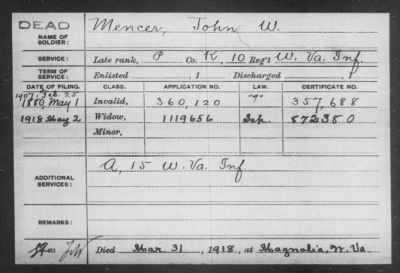 DEAD
NAME OF SOLDIER: Mencer, John W.
SERVICE: Late rank, P Co. K, 10 Reg't W. Va. Inf.
TERM OF SERVICE: Enlisted , 1 Discharged , 1
DATE OF FILING. CLASS. APPLICATION NO. LAW. CERTIFICATE NO.
1907, Feb. 25 "g"
1880, May 1 Invalid, 360,120 357,688
1918 May 2 Widow, 1119656 872380
Minor,
ADDITIONAL SERVICES: A, 15 W. Va. Inf
REMARKS:
Died Mar. 31, 1918, at Magnolia, W. Va.